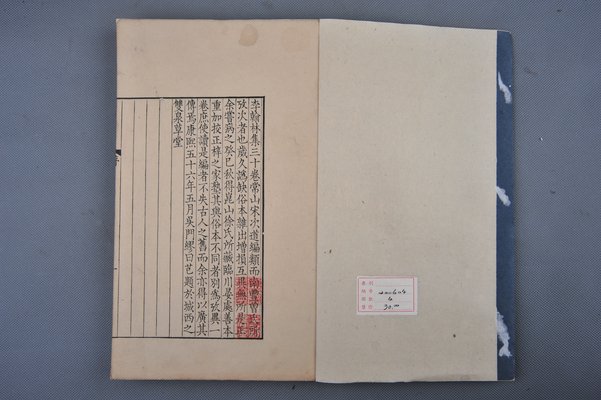 李翰林集三十卷常山宋次道編類而南豐曾氏所
攷次者也歲久譌缺俗本雜出增損互異無所是正
余嘗病之癸巳秋得崑山徐氏所藏臨川晏處善本
重加校正梓之家塾其與俗本不同者別爲攷異一
卷庶使讀是編者不失古人之舊而余亦得以廣其
傳焉康熙五十六年五月吳門繆曰芑題於城西之
雙泉草堂
4
30.00